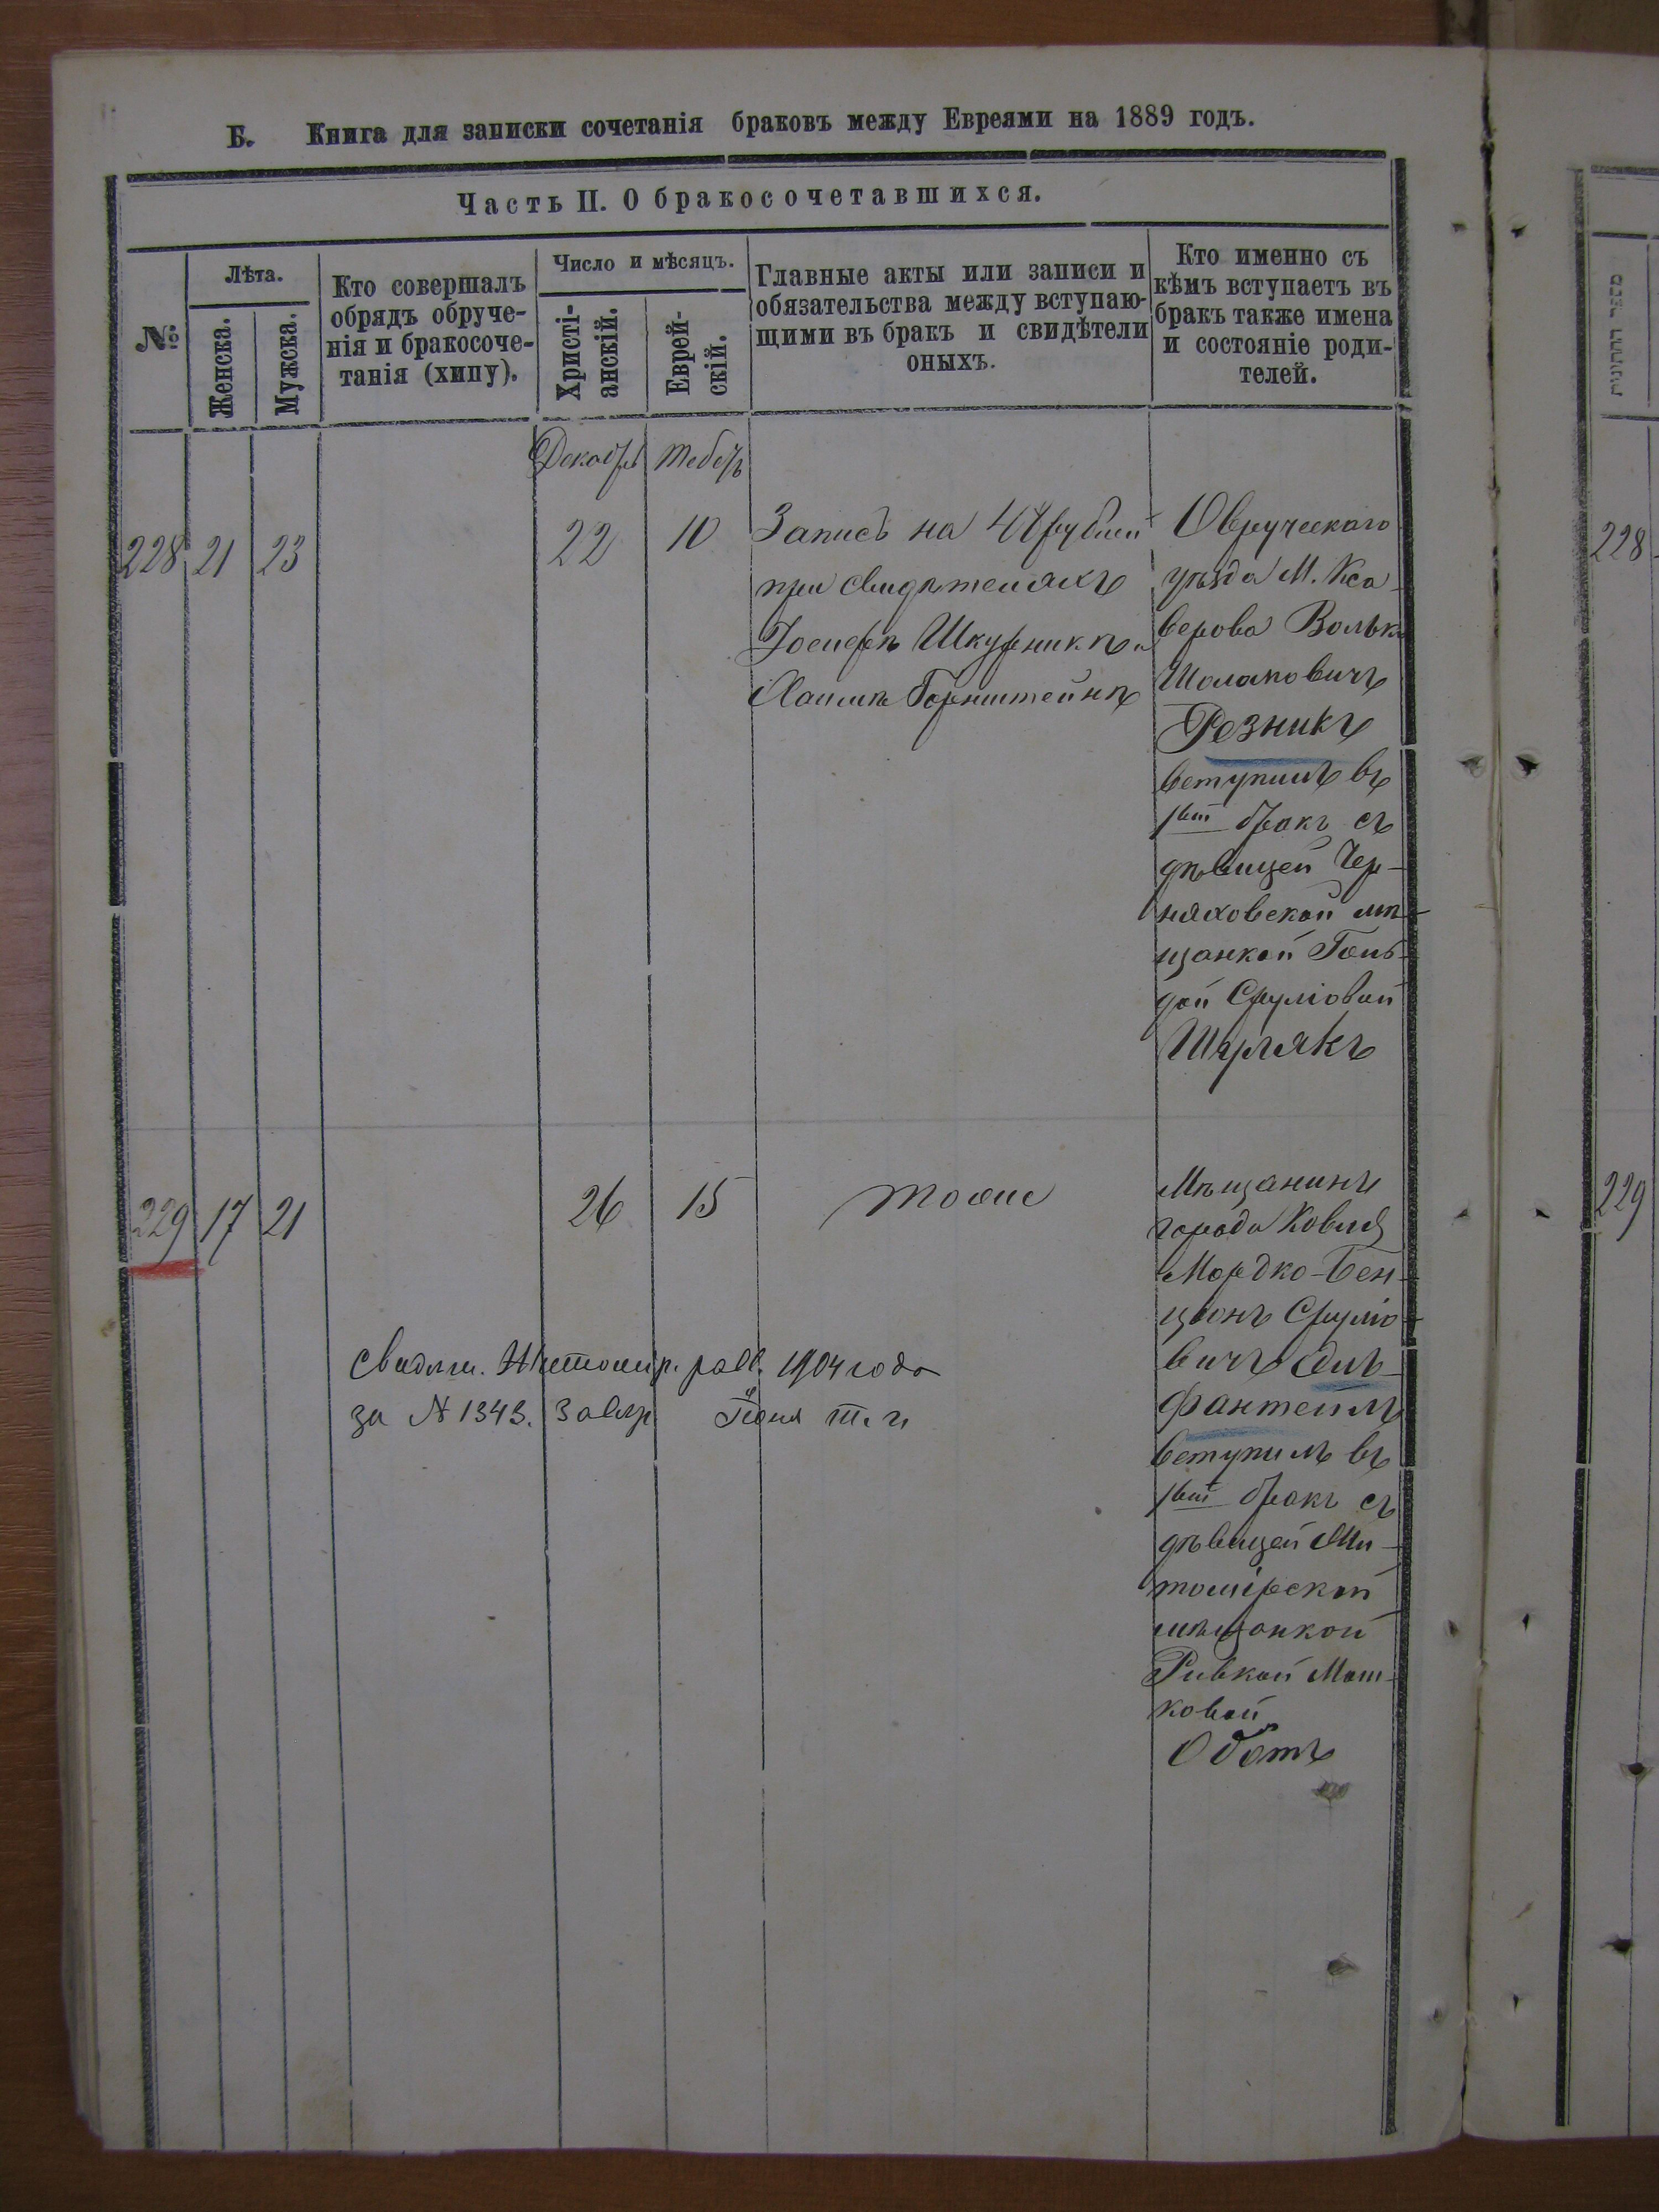 Б. Книга для записки сочетанія браковъ между Евреями на 1889 годъ.
Часть II. О бракосочетавшихся.
№
Лѣта.
Женска.
Мужска.
Кто совершалъ
обрядъ обруче-
нія и бракосоче-
танія (хипу).
Число и мѣсяцъ.
Христі-
анскій.
Еврей-
скій.
Главные акты или записи и
обязательства между вступаю-
щими въ бракъ и свидѣтели
оныхъ.
Кто именно съ
кѣмъ вступаетъ въ
бракъ также имена
и состояніе роди-
телей.
Декабрь
228 21 23
22 10
Запись на 48 рублей
при свидѣтеляхъ
Іосифѣ Шкурникѣ и
Хаимѣ Горнштейнѣ
Овручскаго
уѣзда М. Кса-
верова Волько
Шолаковичъ
Резникъ
вступилъ въ
1вый бракъ съ
дѣвицей Чер-
няховской мѣ-
щанкой Голь-
дой Сруліовой
Шкулякъ
229 17 21
26 15
тоже
Мѣщанинъ
города Ковля
Мордко-Бен-
ціонъ Сруліо-
вичъ Эль-
фантеилъ
вступилъ въ
1вый бракъ съ
дѣвицей Жи-
томірской
мѣщанкой
Ривкой Мош-
ковой
Свидѣт. Житомір. равв. 1904 года
за № 1343.
228
229